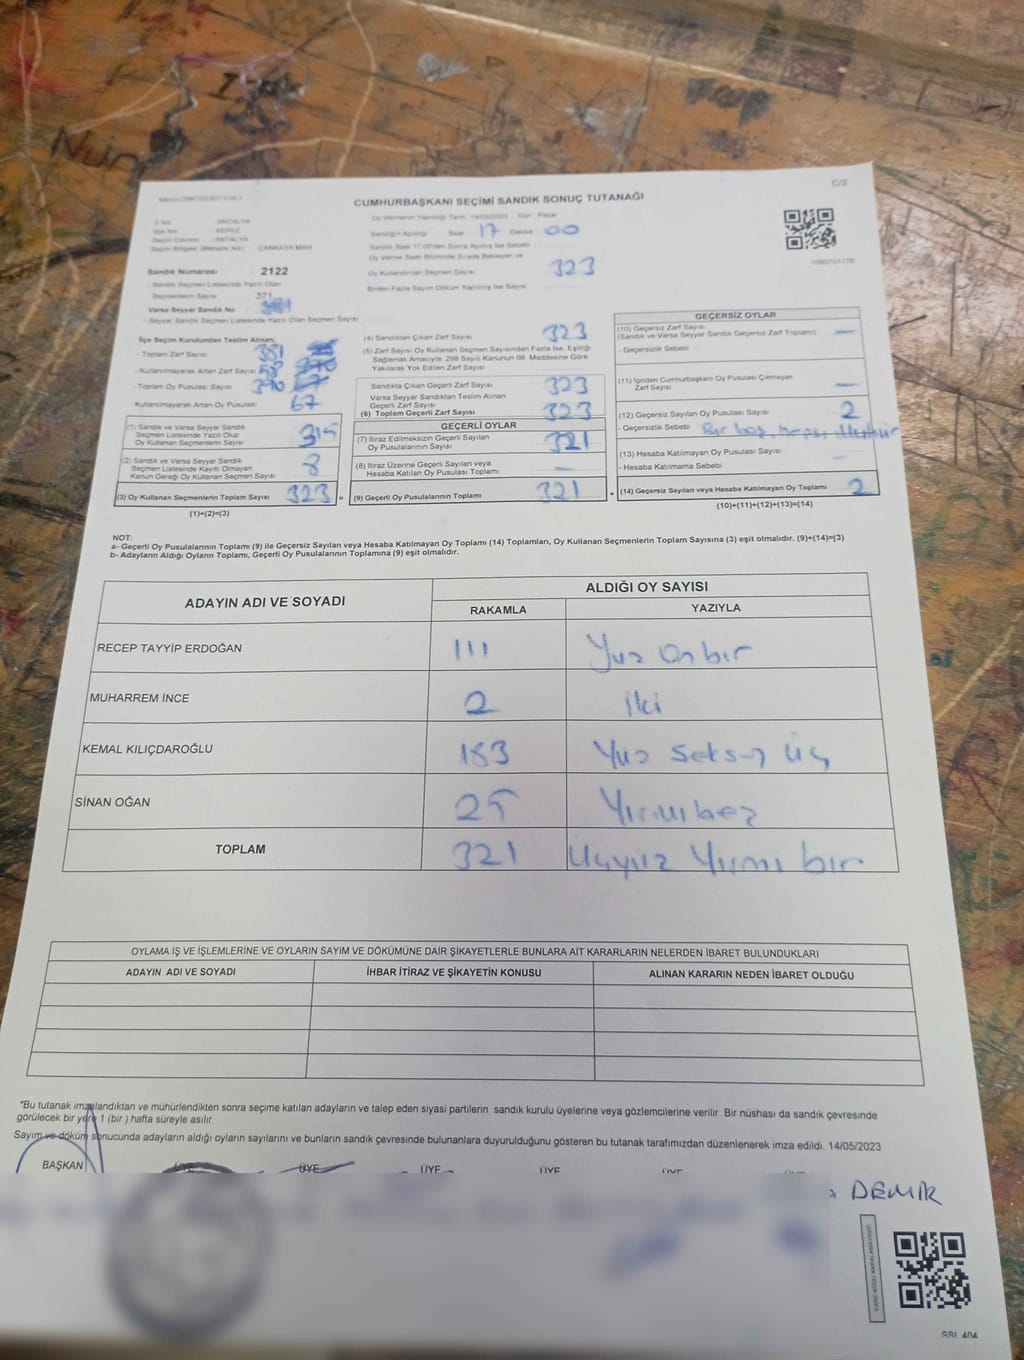 C/2
CUMHURBAŞKANI SEÇİMİ SANDIK SONUÇ TUTANAĞI
Oy Vermenin Yapıldığı Tarih: 14/05/2023 Gün: Pazar
ANTALYA
KEPEZ
ANTALYA
ÇANKAYA MAH
Sandığın Açıldığı Saat 17 Dakika 00
Sandık Saat 17:00'den Sonra Açılmış İse Sebebi
Oy Verme Saati Bitiminde Sırada Bekleyen ve
Oy Kullandırılan Seçmen Sayısı 323
Birden Fazla Sayım Döküm Yapılmış İse Sayısı
Sandık Numarası 2122
- Sandık Seçmen Listesinde Yazılı Olan
Seçmenlerin Sayısı 371
Varsa Seyyar Sandık No
- Seyyar Sandık Seçmen Listesinde Yazılı Olan Seçmen Sayısı
İlçe Seçim Kurulundan Teslim Alınan;
- Toplam Zarf Sayısı
- Kullanılmayarak Artan Zarf Sayısı
- Toplam Oy Pusulası Sayısı
- Kullanılmayarak Artan Oy Pusulası 67
(1) Sandık ve Varsa Seyyar Sandık
Seçmen Listesinde Yazılı Olup
Oy Kullanan Seçmenlerin Sayısı 315
(2) Sandık ve Varsa Seyyar Sandık
Seçmen Listesinde Kayıtlı Olmayan
Kanun Gereği Oy Kullanan Seçmen Sayısı 8
(3) Oy Kullanan Seçmenlerin Toplam Sayısı 323 =
(1)+(2)=(3)
(4) Sandıktan Çıkan Zarf Sayısı 323
(5) Zarf Sayısı Oy Kullanan Seçmen Sayısından Fazla İse, Eşitliği
Sağlamak Amacıyla, 298 Sayılı Kanunun 98. Maddesine Göre
Yakılarak Yok Edilen Zarf Sayısı
Sandıkta Çıkan Geçerli Zarf Sayısı 323
Varsa Seyyar Sandıktan Teslim Alınan
Geçerli Zarf Sayısı
(6) Toplam Geçerli Zarf Sayısı 323
GEÇERLİ OYLAR
(7) İtiraz Edilmeksizin Geçerli Sayılan
Oy Pusulalarının Sayısı 321
(8) İtiraz Üzerine Geçerli Sayılan veya
Hesaba Katılan Oy Pusulası Toplamı –
(9) Geçerli Oy Pusulalarının Toplamı 321 +
GEÇERSİZ OYLAR
(10) Geçersiz Zarf Sayısı
(Sandık ve Varsa Seyyar Sandık Geçersiz Zarf Toplamı) –
- Geçersizlik Sebebi
(11) İçinden Cumhurbaşkanı Oy Pusulası Çıkmayan
Zarf Sayısı –
(12) Geçersiz Sayılan Oy Pusulası Sayısı 2
- Geçersizlik Sebebi Bir boş,
(13) Hesaba Katılmayan Oy Pusulası Sayısı –
- Hesaba Katılmama Sebebi
(14) Geçersiz Sayılan veya Hesaba Katılmayan Oy Toplamı 2
(10)+(11)+(12)+(13)=(14)
NOT:
a- Geçerli Oy Pusulalarının Toplamı (9) ile Geçersiz Sayılan veya Hesaba Katılmayan Oy Toplamı (14) Toplamları, Oy Kullanan Seçmenlerin Toplam Sayısına (3) eşit olmalıdır. (9)+(14)=(3)
b- Adayların Aldığı Oyların Toplamı, Geçerli Oy Pusulalarının Toplamına (9) eşit olmalıdır.
ADAYIN ADI VE SOYADI ALDIĞI OY SAYISI
RAKAMLA YAZIYLA
RECEP TAYYİP ERDOĞAN 111 Yüz On bir
MUHARREM İNCE 2 iki
KEMAL KILIÇDAROĞLU 183 Yüz Seksen üç
SİNAN OĞAN 25 Yirmi beş
TOPLAM 321 Üçyüz Yirmi bir
OYLAMA İŞ VE İŞLEMLERİNE VE OYLARIN SAYIM VE DÖKÜMÜNE DAİR ŞİKAYETLERLE BUNLARA AİT KARARLARIN NELERDEN İBARET BULUNDUKLARI
ADAYIN ADI VE SOYADI İHBAR İTİRAZ VE ŞİKAYETİN KONUSU ALINAN KARARIN NEDEN İBARET OLDUĞU
*Bu tutanak imzalandıktan ve mühürlendikten sonra seçime katılan adayların ve talep eden siyasi partilerin sandık kurulu üyelerine veya gözlemcilerine verilir. Bir nüshası da sandık çevresinde
görülecek bir yere 1 (bir) hafta süreyle asılır.
Sayım ve döküm sonucunda adayların aldığı oyların sayılarını ve bunların sandık çevresinde bulunanlara duyurulduğunu gösteren bu tutanak tarafımızdan düzenlenerek imza edildi. 14/05/2023
BAŞKAN ÜYE ÜYE ÜYE ÜYE ÜYE
DEMİR